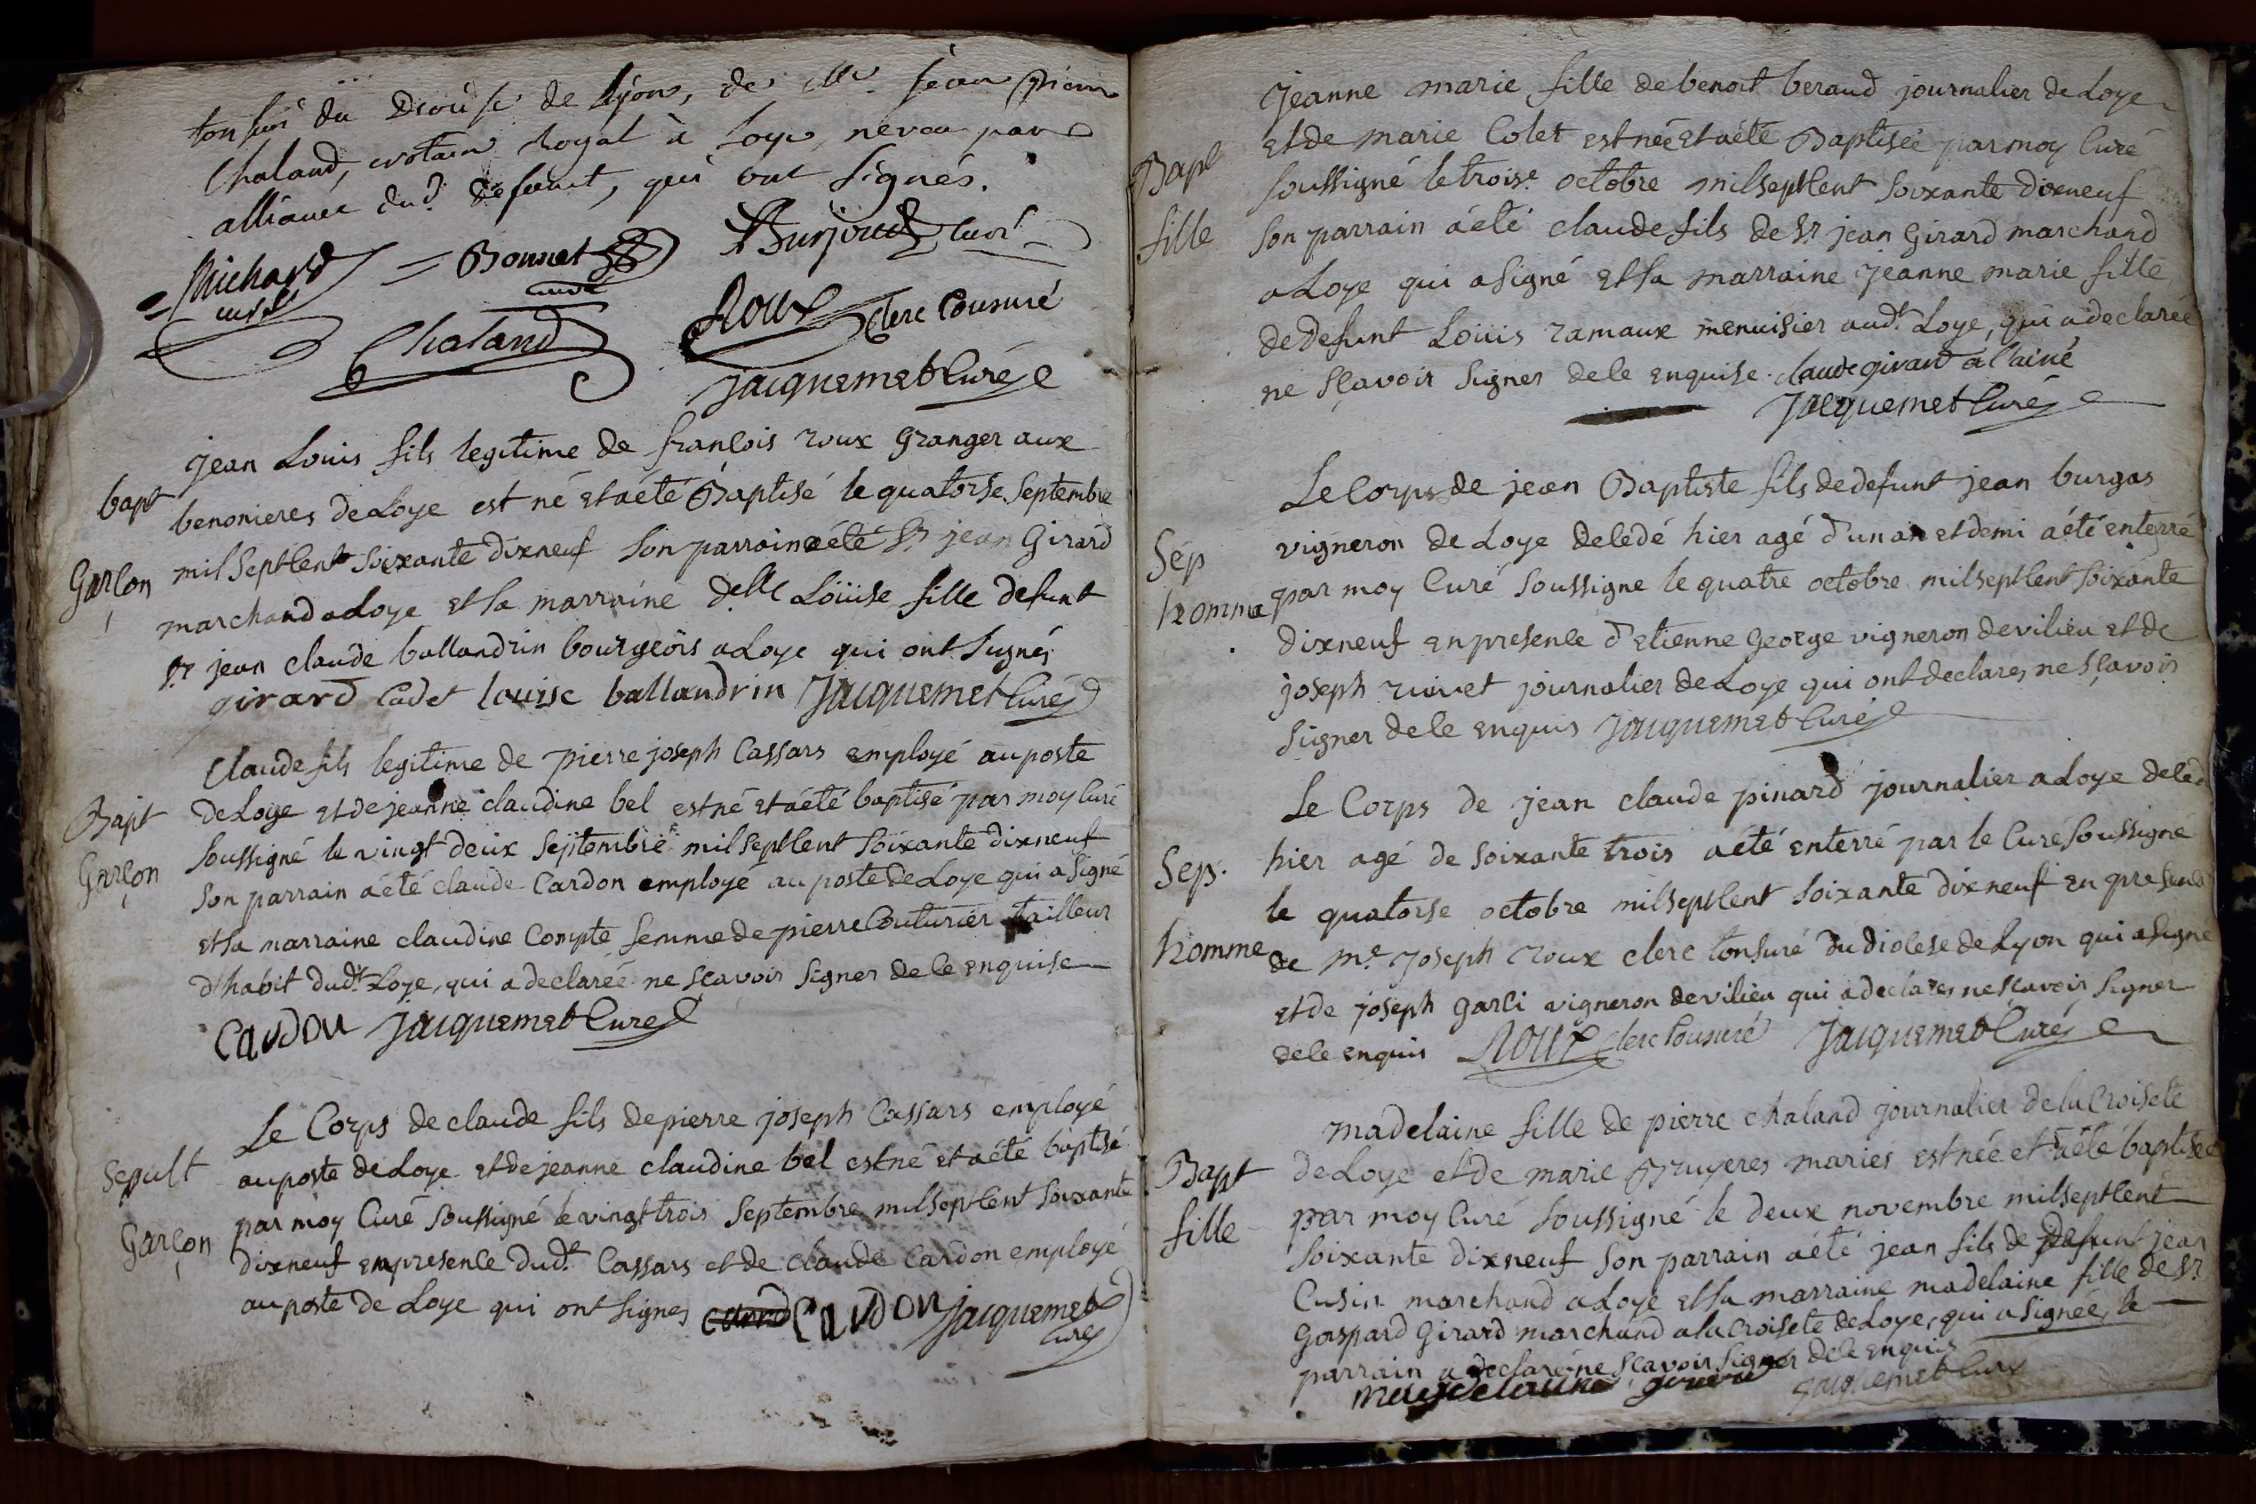 tonsuré du Diocèse de Lyon, de Me. Jean Pierre
Chaland, notaire Royal à Loye, neveu par
alliance dud. défunt, qui ont signés.
Richard curé = Bonnet curé Burjoud, curé
Chaland Roux clerc tonsuré
jacquemet Curé
bapt
Garçon
jean Louis fils legitime de françois roux Granger aux
benonieres de Loye est né et aété Baptisé le quatorse Septembre
mil Sept Cent Soixante dixneuf son parrain aété Sr jean Girard
marchand a Loye et sa marraine delle Loüise fille defunt
Sr jean claude ballandrin bourgeois a Loye qui ont signés
girard Cadet louise ballandrin Jacquemet Curé
Bapt
Garçon
Claude fils legitime de pierre joseph Cassars employé au poste
de Loye et de jeanne claudine bel est né et aété baptisé par moy Curé
soussigné le vingt deux Septembre mil sept Cent Soixante dixneuf
son parrain aété claude Cardon employé au poste de Loye qui a signé
et sa marraine claudine Compte femme de pierre Couturier tailleur
d'habit dudt Loye, qui a declarée ne sçavoir signer de ce enquise
Cardon jacquemet Curé
Sepult
Garçon
Le Corps de claude fils de pierre joseph Cassars employé
au poste de Loye et de jeanne claudine bel est né et aété baptisé
par moy Curé soussigné le vingt trois Septembre mil sept Cent Soixante
dixneuf en presence dudt. Cassars et de claude Cardon employé
au poste de Loye qui ont signes Cardon jacquemet
Curé
Bapt
fille
jeanne marie fille de benoit beraud journalier de Loye
et de marie Colet est née et aété Baptisée par moy Curé
soussigné le troise. octobre mil sept Cent Soixante dixneuf
son parrain aété claude fils de Sr jean Girard marchand
a Loye qui a signé et sa marraine jeanne marie fille
de defunt Louis ramaux menuisier audt. Loye, qui a declarée
ne sçavoir signer de ce enquise. claude girard a l'ainé
Jacquemet Curé
Sép
homme
Le Corps de jean Baptiste fils de defunt jean burgas
vigneron de Loye decedé hier agé d'un an et demi aété enterré
par moy Curé soussigne le quatre octobre mil sept Cent Soixante
dixneuf en presence d'etienne George vigneron de vilieu et de
joseph rivet journalier de Loye qui ont declares ne sçavoir
signer de ce enquis jacquemet Curé
Sep.
homme
Le Corps de jean claude pinard journalier a Loye deced
hier agé de soixante trois aété enterré par le Curé soussigné
le quatorse octobre mil sept Cent Soixante dixneuf en presence
de me. joseph roux clerc tonsuré du diocese de Lyon qui a signé
et de joseph garci vigneron de vilieu qui a declares ne sçavoir signer
de ce enquis Roux clerc tonsuré Jacquemet Curé
Bapt
fille
madelaine fille de pierre chaland journalier de la Croisete
de Loye et de marie Bruyeres maries est née et aété baptisée
par moy Curé soussigné le deux novembre mil sept Cent
Soixante dixneuf son parrain aété jean fils de defunt jean
Cusin marchand a Loye et sa marraine madelaine fille de Sr
Gaspard Girard marchand a la Croisete de Loye, qui a signée, le
parrain a declaré ne sçavoir signer de ce enquis
magdelaine girard jacquemet Curé